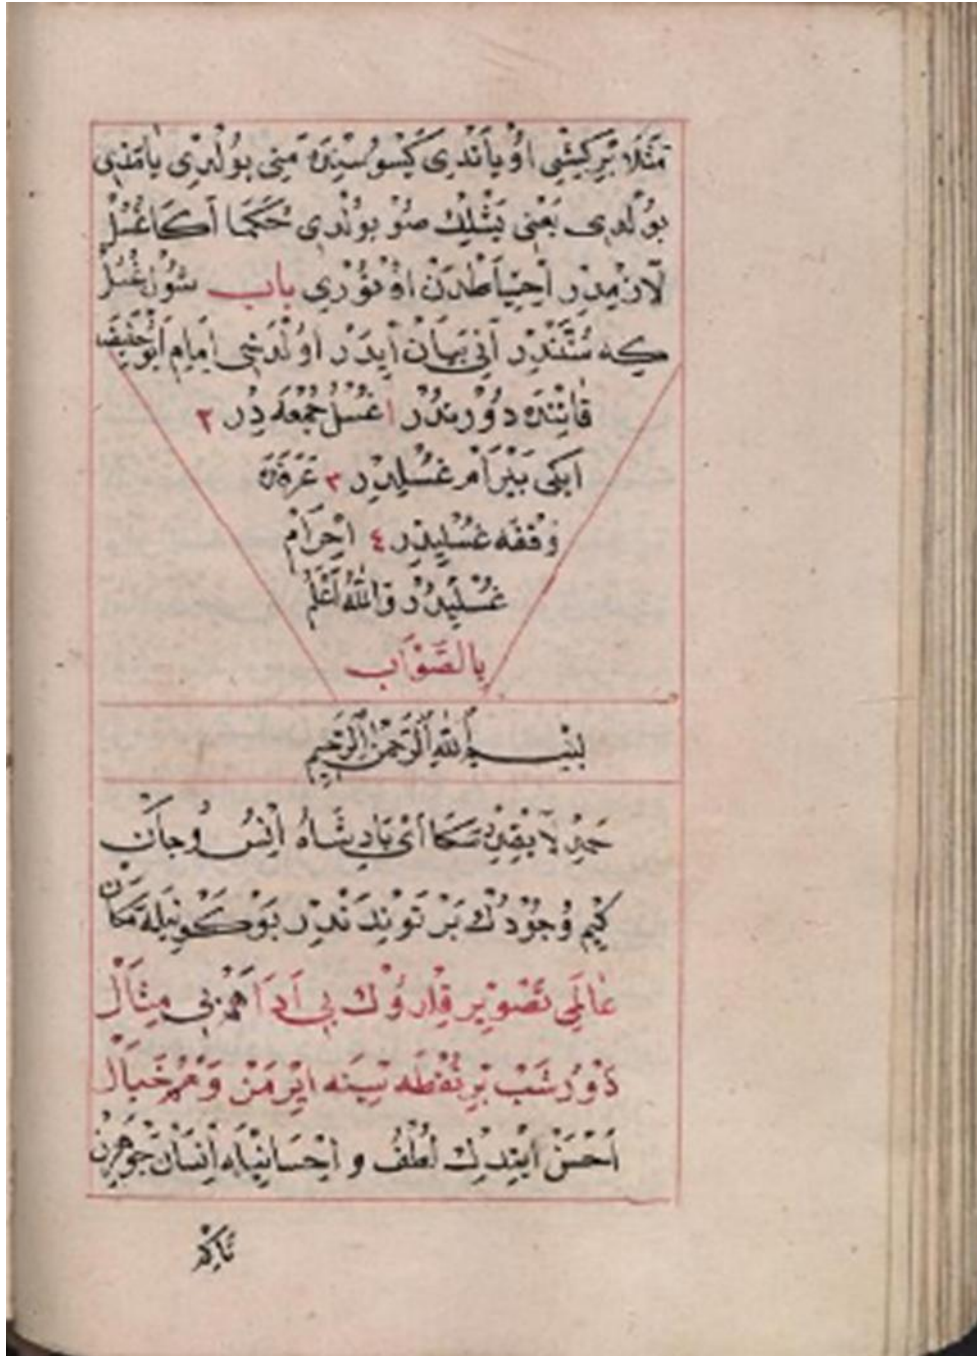 مَثَلَا بَرْ كِيشِى اوُيَانْدِى كَسْوُسِنْدَه مَنِى بُولْدِى يَا مَذِى
بُولْدِى يَعْنِى يَشْلِكْ صُو بُولْدِى حُكمَا اَكَا غُسْلْ
لَازِمْدِرْ اِحْتِيَاطْدَنْ اوُتُوْرِى بَابْ شُولْ غُسْلْ
كِه سُنَّتْدِرْ اَنِى بَيَانْ اَيدَرْ اوُلْدَخِى اِمَامِ اَبُو حَنِيفَه
قَاتِنْدَه دُوْرْتدُرْ ١ غُسْلُ جُمْعَه دِرْ ٢
ايكِى بَيْرَامْ غُسْلِدِرْ ٣ عَرَفَه
وَقْفَه غُسْلِيدِرْ ٤ اِحْرَامْ
غُسْلِيدُرْ وَاللّٰهُ اَعْلَمُ
بِالصَّوَابِ
بِسْــــمِ اللّٰهِ الرَّحْمٰنِ الرَّحِيمِ
حَمْدِ لَا يُفْنِى سَكَا اَىْ پَادِشَاهُ اِنْسُ وجَانْ
كِيمْ وُجُودُكْ بَرْ تَوِنْدَنْدِرْ بَوْ كَوْنِيلَه مَكَانْ
عَالَمِى تَصْوِيرْ قِلْدُوْكْ بِى اَدَا هَمْ بِى مِثَالْ
دَوْرُ شَبْ بِرْ نُقْطَه سِنَه ايْرمَزْ وَهْمُ خَيَالْ
اَحْسَنْ اَيتِدِكْ لُطْفُ و اِحْسَانِيلَه اِنْسَانْ جَوْهَرِنْ
تَاكِه